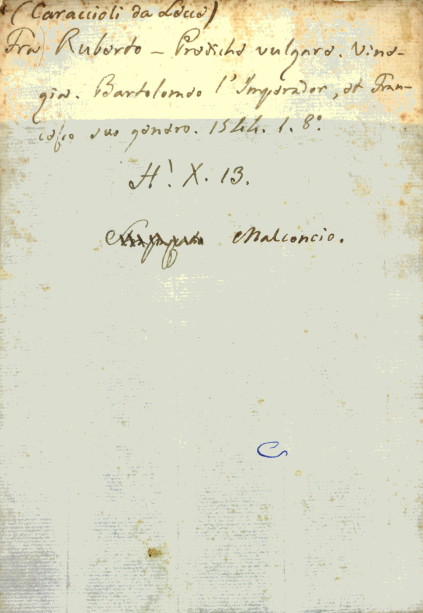 (Caraccioli da Lecce)
Fra Ruberto – Prediche vulgare. Vine-
gia. Bartolomeo l'Imperador, et Fran-
cesco suo genero. 1544. 1. 8º.
H! X. 13.
Malconcio.